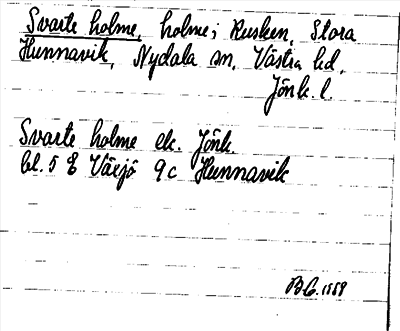 Svarte holme, holme i Rusken, Stora
Hunnavik, Nydala sn, Västra hd,
Jönk. l.
Svarte holme ek. Jönk.
bl. 5 E Växjö 9c Hunnavik
B.G. 1959